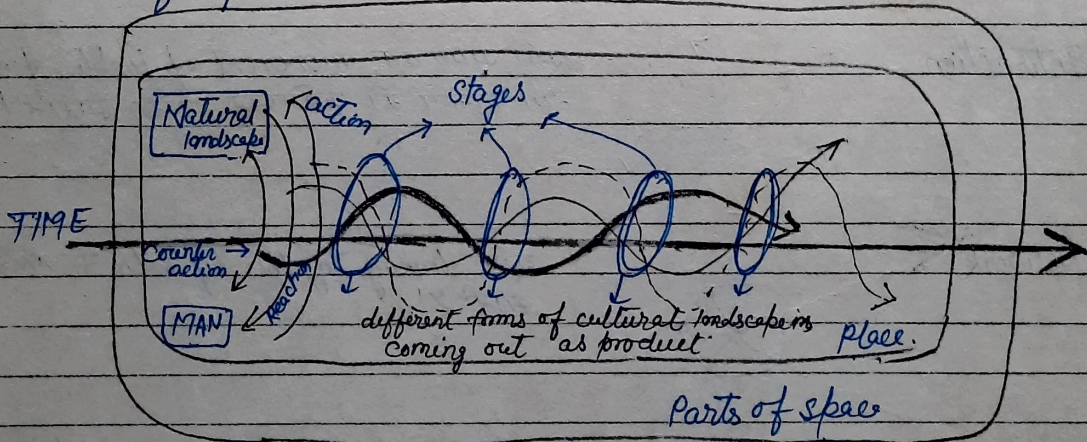 Stages
Natural
landscape
action
TIME
Counter
action
Reaction
MAN
different forms of cultural landscape is
coming out as product.
Place.
Parts of space